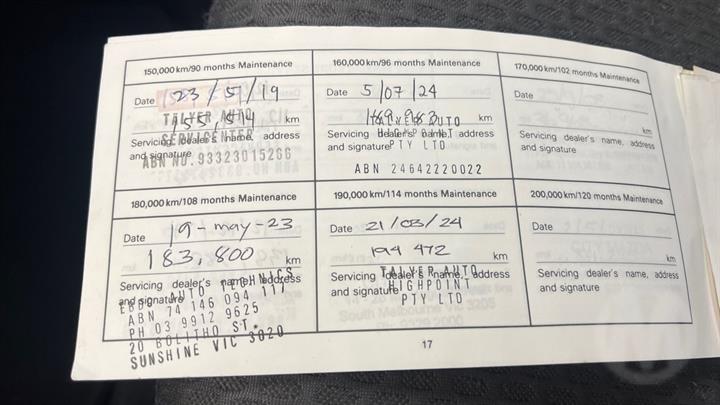 150,000 km/90 months Maintenance
Date 23/5/19
km
TALYER AUTO
SERVICENTER
Servicing dealer's name, address
and signature
ABN NO. 93323015266
160,000 km/96 months Maintenance
Date 5/07/24
km
TALYER AUTO
Servicing dealer's name, address
and signature
PTY LTD
ABN 24642220022
170,000 km/102 months Maintenance
Date
km
Servicing dealer's name, address
and signature
180,000 km/108 months Maintenance
Date 19-may-23
183,800 km
Servicing dealer's name, address
and signature
AUTO TECHNICS
ABN 74 146 094 111
PH 03 9912 9625
20 BOLITHO ST.
SUNSHINE VIC 3020
190,000 km/114 months Maintenance
Date 21/03/24
194 472 km
Servicing dealer's name, address
and signature
TALYER AUTO
HIGHPOINT
PTY LTD
200,000 km/120 months Maintenance
Date
km
Servicing dealer's name, address
and signature
17